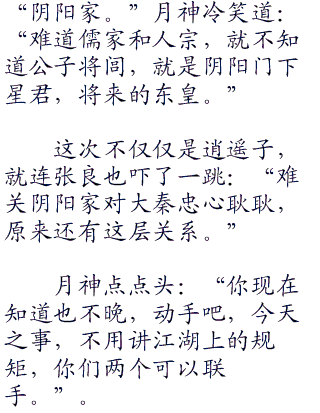 “阴阳家。”月神冷笑道：
“难道儒家和人宗，就不知
道公子将闾，就是阴阳门下
星君，将来的东皇。”
这次不仅仅是逍遥子，
就连张良也吓了一跳：“难
关阴阳家对大秦忠心耿耿，
原来还有这层关系。”
月神点点头：“你现在
知道也不晚，动手吧，今天
之事，不用讲江湖上的规
矩，你们两个可以联
手。”。